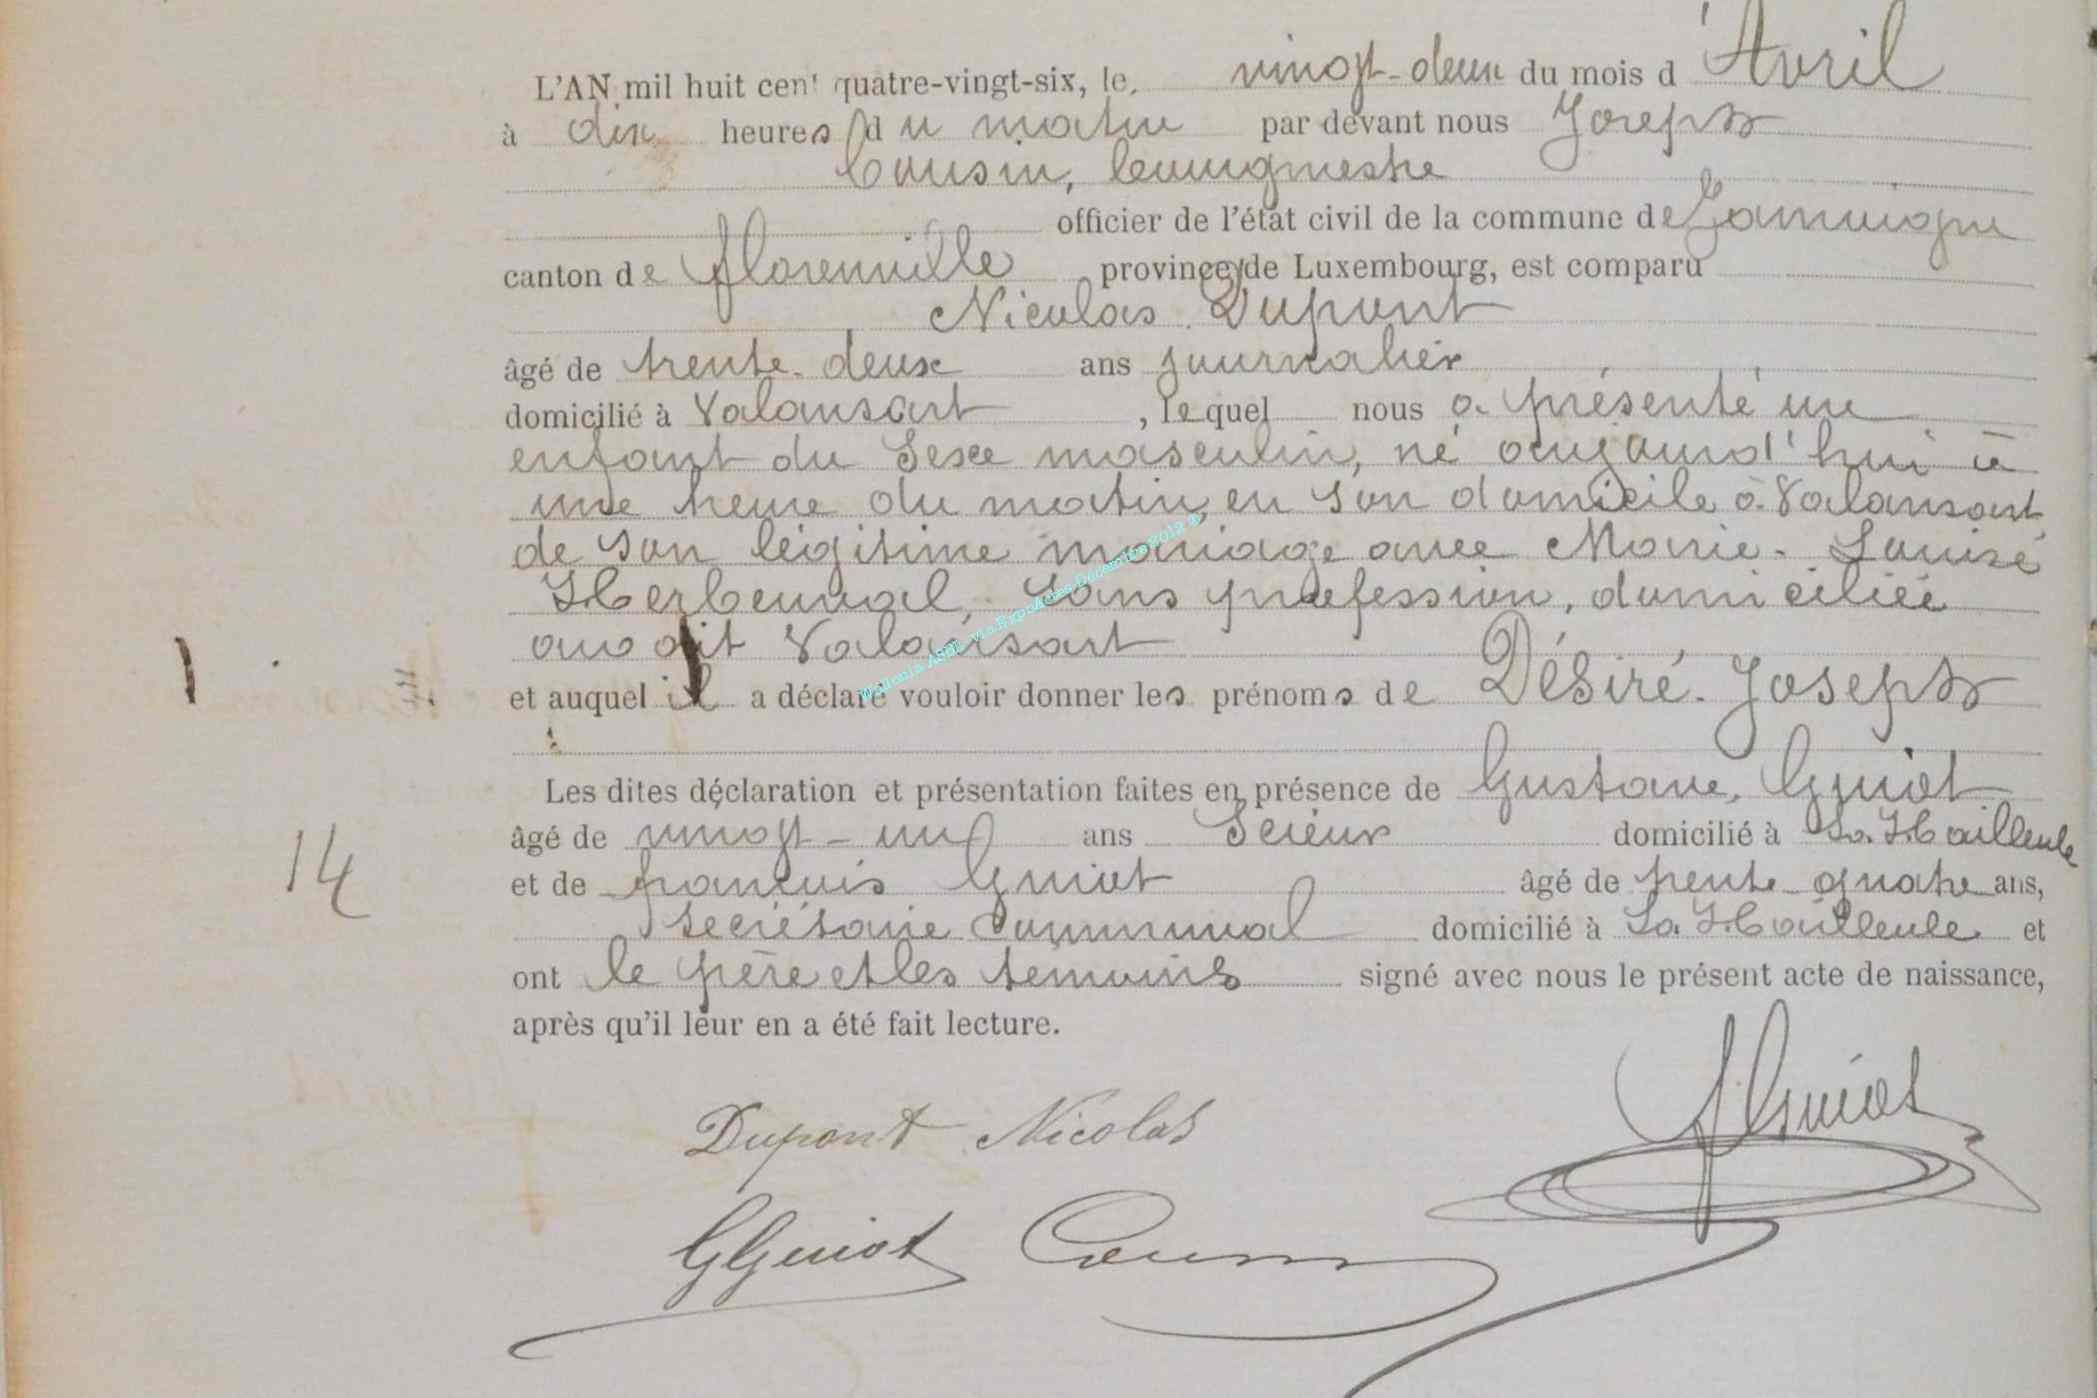 L'AN mil huit cent quatre-vingt-six, le vingt-deux du mois d'Avril
à dix heures du matin par devant nous Joseph
Cousin, bourgmestre
officier de l'état civil de la commune de Jamoigne
canton de florenville province de Luxembourg, est comparu
Nicolas Dupont
âgé de trente-deux ans journalier
domicilié à Valansart, lequel nous a présenté un
enfant du Sexe masculin, né aujourd'hui à
une heure du matin, en son domicile à Valansart
de son légitime mariage avec Marie-Louise
Herbeuval, Sans profession, domiciliée
au dit Valansart
et auquel il a déclaré vouloir donner les prénoms de Désiré-Joseph
Les dites déclaration et présentation faites en présence de Gustave Guiot
âgé de vingt-neuf ans Scieur domicilié à La Hailleule
14 et de françois Guiot âgé de trente-quatre ans,
secrétaire communal domicilié à La Hailleule et
ont le père et les témoins signé avec nous le présent acte de naissance,
après qu'il leur en a été fait lecture.
Dupont Nicolas
f Guiot
G Guiot Cousin
Wallonia ASBL via ExpoActes Décembre 2012